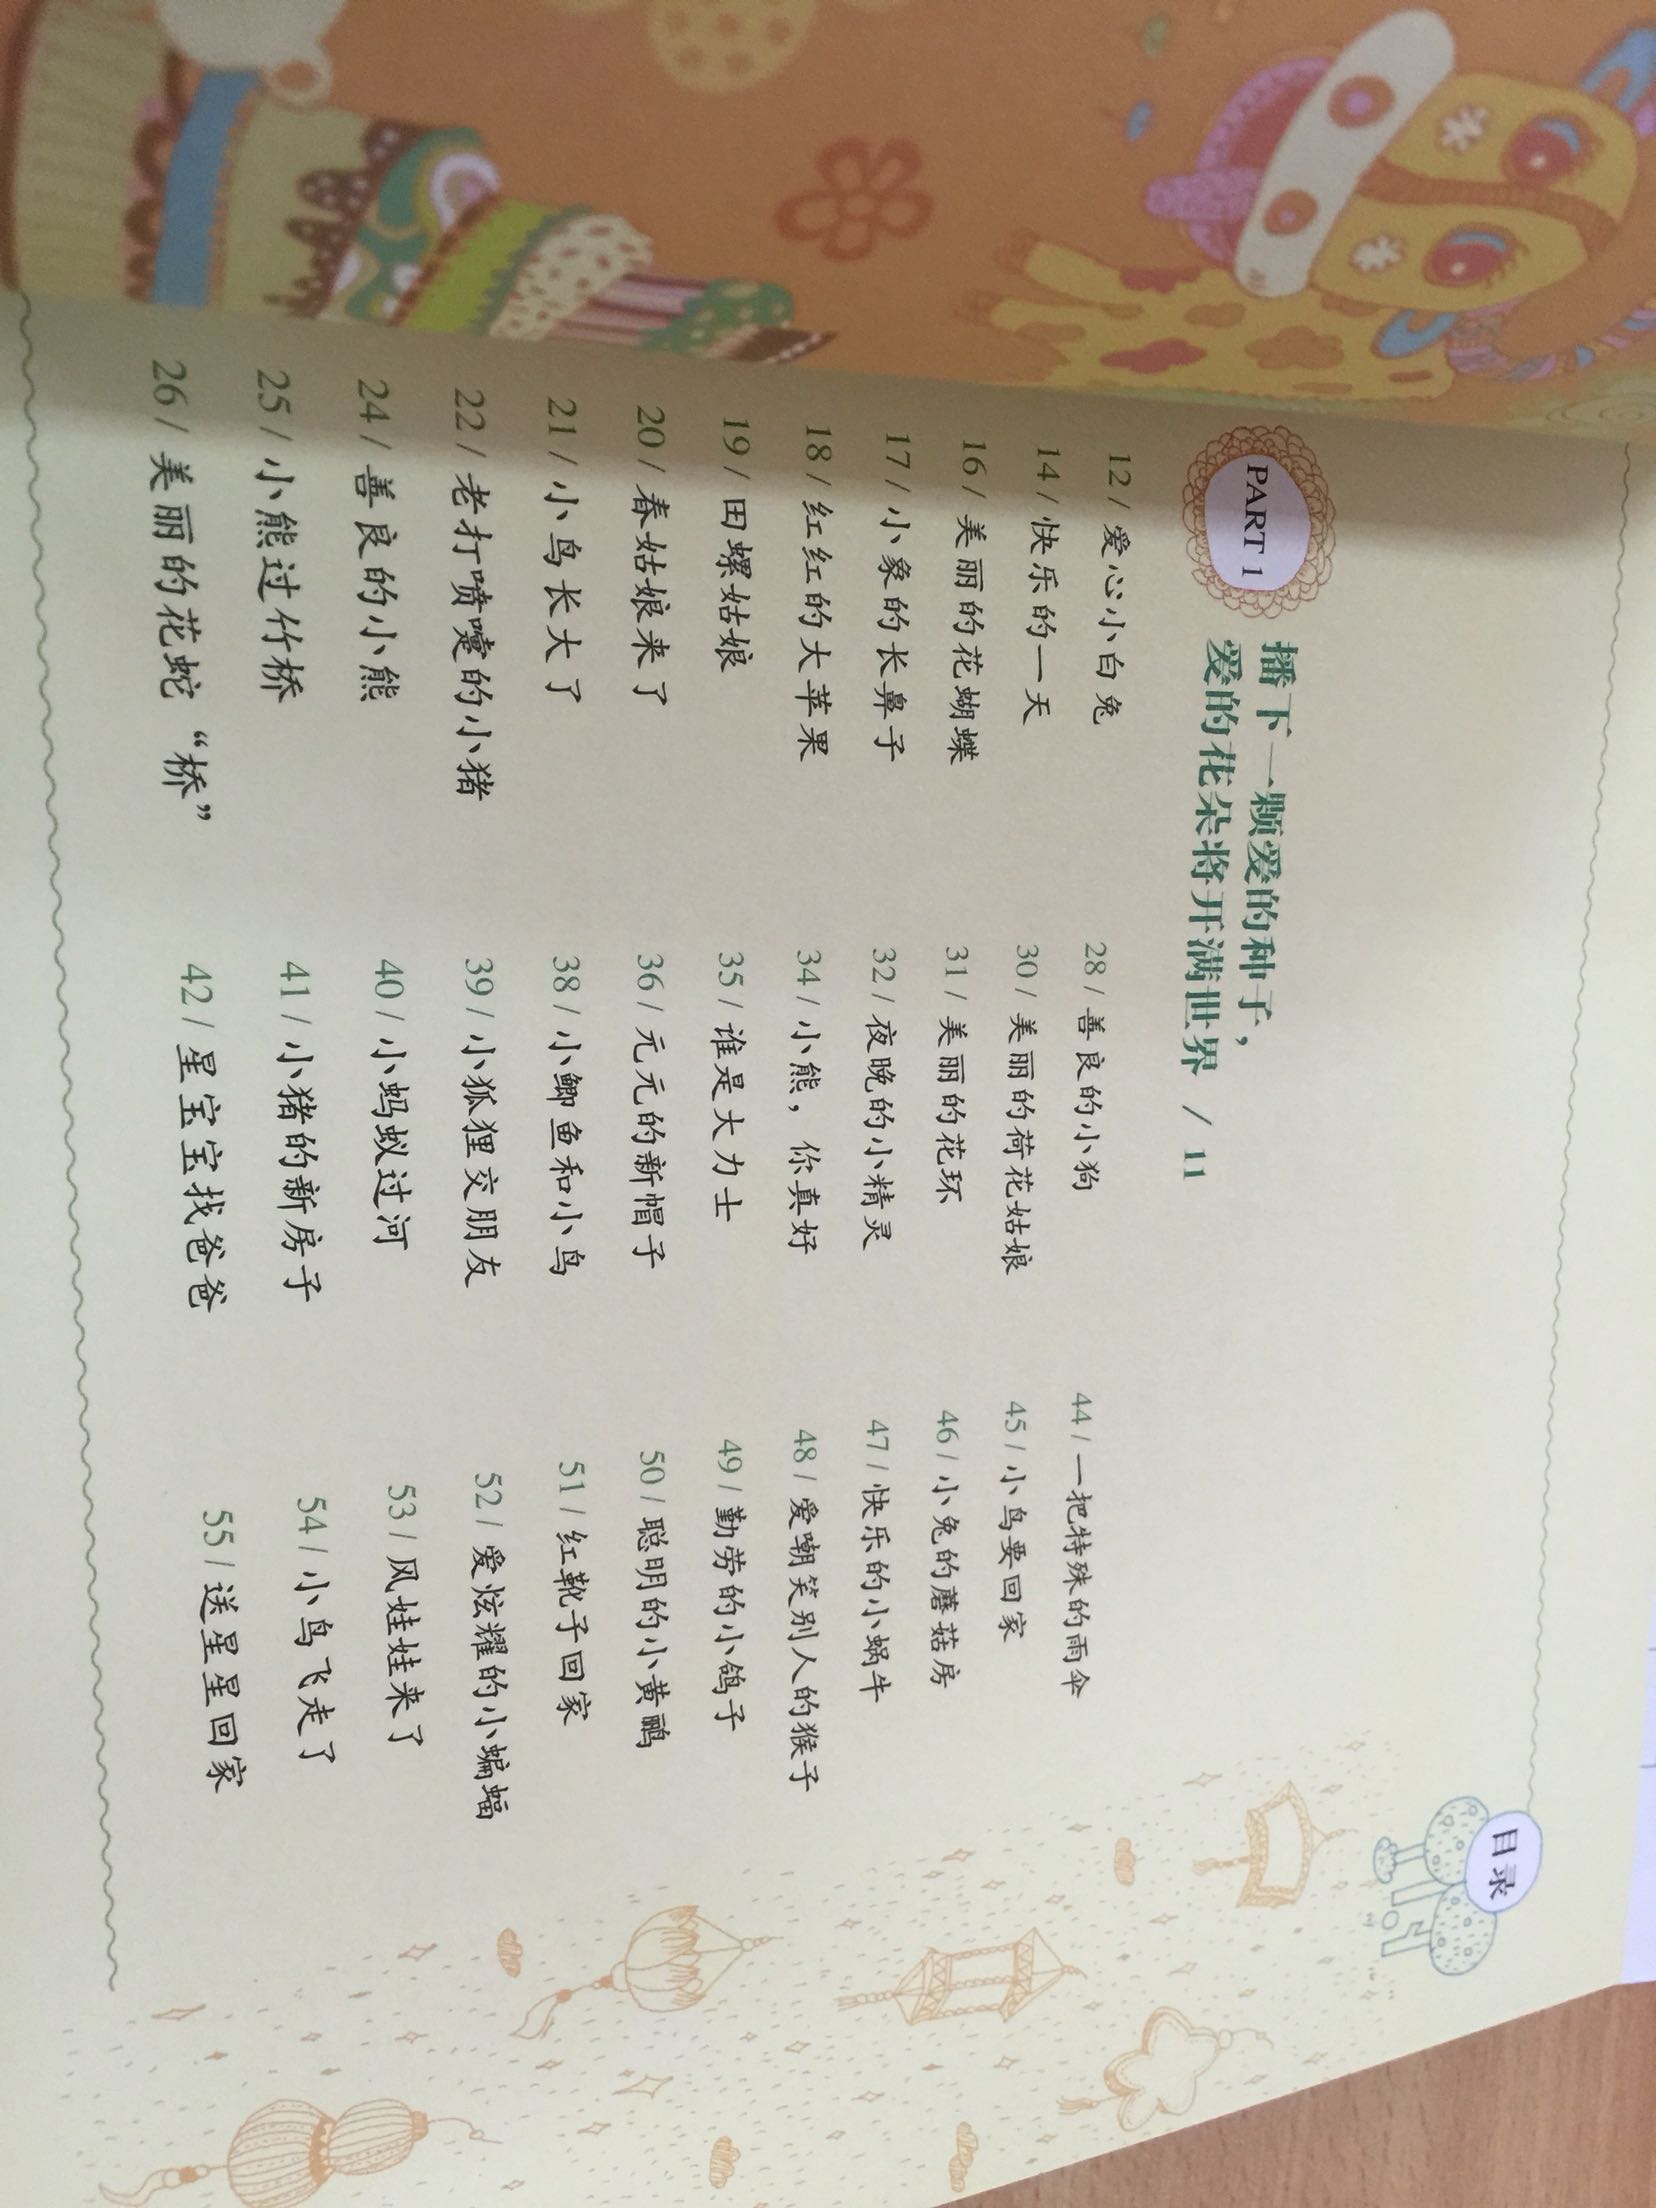 目录
PART 1
播下一颗爱的种子，
爱的花朵将开满世界 / 11
12 / 爱心小白兔
14 / 快乐的一天
16 / 美丽的花蝴蝶
17 / 小象的长鼻子
18 / 红红的大苹果
19 / 田螺姑娘
20 / 春姑娘来了
21 / 小鸟长大了
22 / 老打喷嚏的小猪
24 / 善良的小熊
25 / 小熊过竹桥
26 / 美丽的花蛇“桥”
28 / 善良的小狗
30 / 美丽的荷花姑娘
31 / 美丽的花环
32 / 夜晚的小精灵
34 / 小熊，你真好
35 / 谁是大力士
36 / 元元的新帽子
38 / 小鲫鱼和小鸟
39 / 小狐狸交朋友
40 / 小蚂蚁过河
41 / 小猪的新房子
42 / 星宝宝找爸爸
44 / 一把特殊的雨伞
45 / 小鸟要回家
46 / 小兔的蘑菇房
47 / 快乐的小蜗牛
48 / 爱嘲笑别人的猴子
49 / 勤劳的小鸽子
50 / 聪明的小黄鹂
51 / 红靴子回家
52 / 爱炫耀的小蝙蝠
53 / 风娃娃来了
54 / 小鸟飞走了
55 / 送星星回家